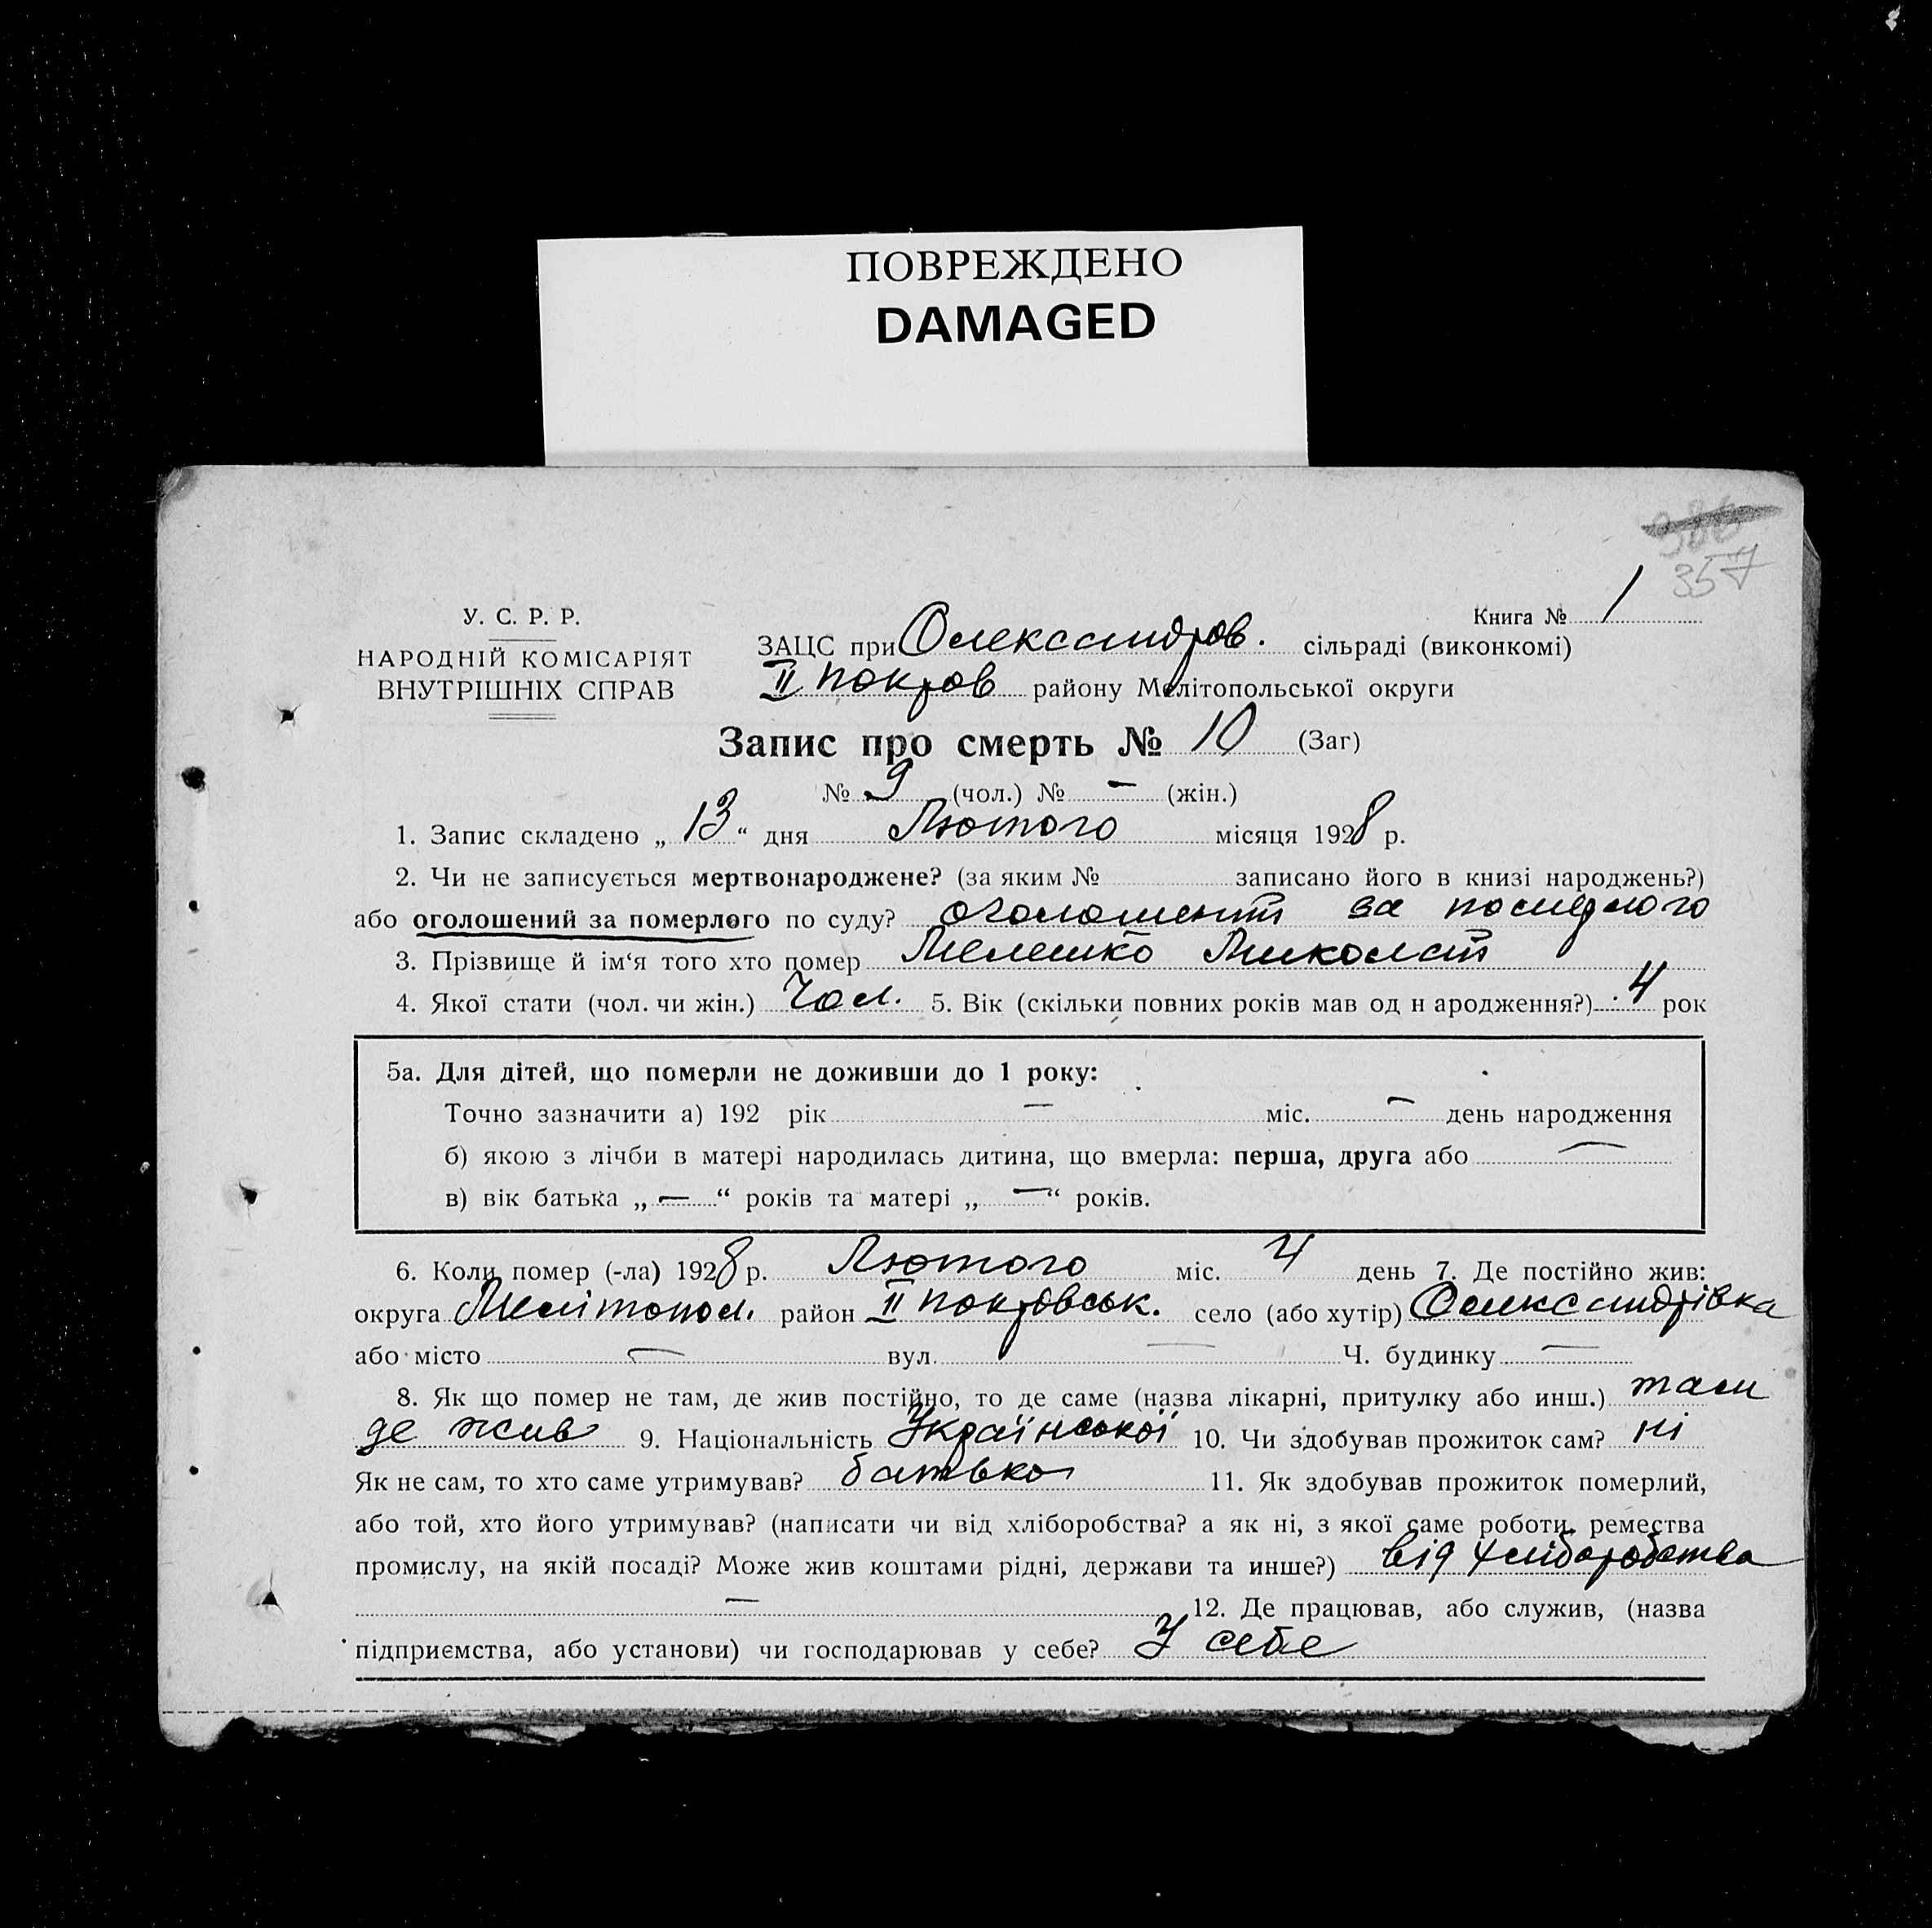 ПОВРЕЖДЕНО
DAMAGED
386
357
У. С. Р. Р.
НАРОДНІЙ КОМІСАРІЯТ
ВНУТРІШНІХ СПРАВ
Книга № 1
ЗАЦС при Олександров. сільраді (виконкомі)
II Покров району Мелітопольської округи
Запис про смерть № 10 (Заг)
№ 9 (чол.) № — (жін.)
1. Запис складено „ 13 “ дня Лютого місяця 1928 р.
2. Чи не записується мертвонароджене? (за яким № записано його в книзі народжень?)
або оголошений за померлого по суду? оголошений за
3. Прізвище й ім‘я того хто помер Мелешко Миколай
4. Якої стати (чол. чи жін.) Чол. 5. Вік (скільки повних років мав од н ародження?) 4 рок
5а. Для дітей, що померли не доживши до 1 року:
Точно зазначити а) 192 рік — міс. — день народження
б) якою з лічби в матері народилась дитина, що вмерла: перша, друга або —
в) вік батька „ — “ років та матері „ — “ років.
6. Коли помер (-ла) 1928 р. Лютого міс. 4 день 7. Де постійно жив:
округа Мелітопол. район II Покровськ. село (або хутір) Олександрівка
або місто — вул. — Ч. будинку —
8. Як що помер не там, де жив постійно, то де саме (назва лікарні, притулку або инш.) там
де жив 9. Національність Української 10. Чи здобував прожиток сам? ні
Як не сам, то хто саме утримував? батько 11. Як здобував прожиток померлий,
або той, хто його утримував? (написати чи від хліборобства? а як ні, з якої саме роботи, ремества
промислу, на якій посаді? Може жив коштами рідні, держави та инше?) від хліборобства
— 12. Де працював, або служив, (назва
підприємства, або установи) чи господарював у себе? У себе